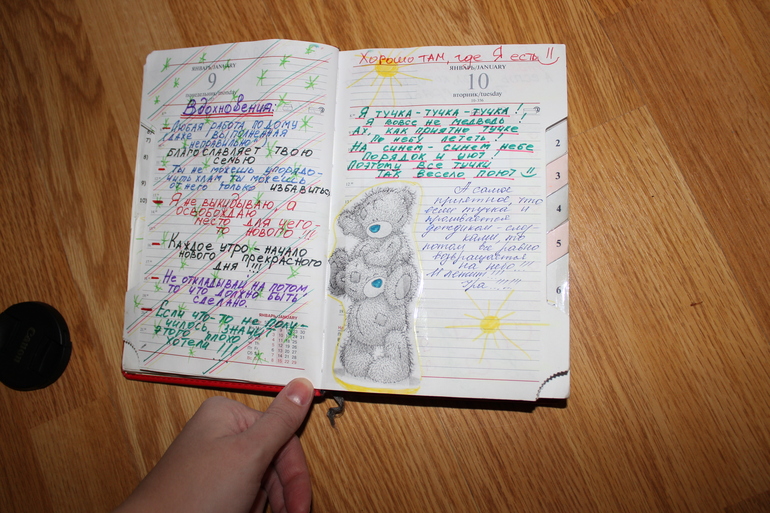 ЯНВАРЬ/JANUARY
9
понедельник/monday
Вдохновения:
– Любая работа по дому
(даже выполненная
неправильно)
благославляет твою
семью
– Ты не можешь упорядо-
чить хлам, ты можешь
от него только избавиться
– Я не выкидываю, а
освобождаю
место для чего-
то нового!!!
– Каждое утро – начало
нового прекрасного
дня!!!
– Не откладывай на потом
то что должно быть
сделано.
– Если что-то не полу-
чилось, значит
этого плохо
хотели!!!!
ЯНВАРЬ/JANUARY
Хорошо там, где Я есть!!
ЯНВАРЬ/JANUARY
10
вторник/tuesday
Я тучка-тучка-тучка!
Я вовсе не медведь!
Ах, как приятне тучке
По небу лететь!
На синем-синем небе
Порядок и уют!
Поэтому все тучки
Так весело поют!
А самое
приятное, что
если тучка и
проливается
дождиком-сле-
ками, то
потом всё равно
возвращается
на небо!!!
Ура.....!!!!
7
8
9
10
2
3
4
5
6